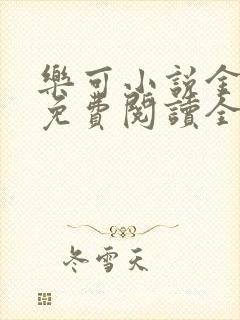 樂可小說全
免費閱讀全
冬雪天